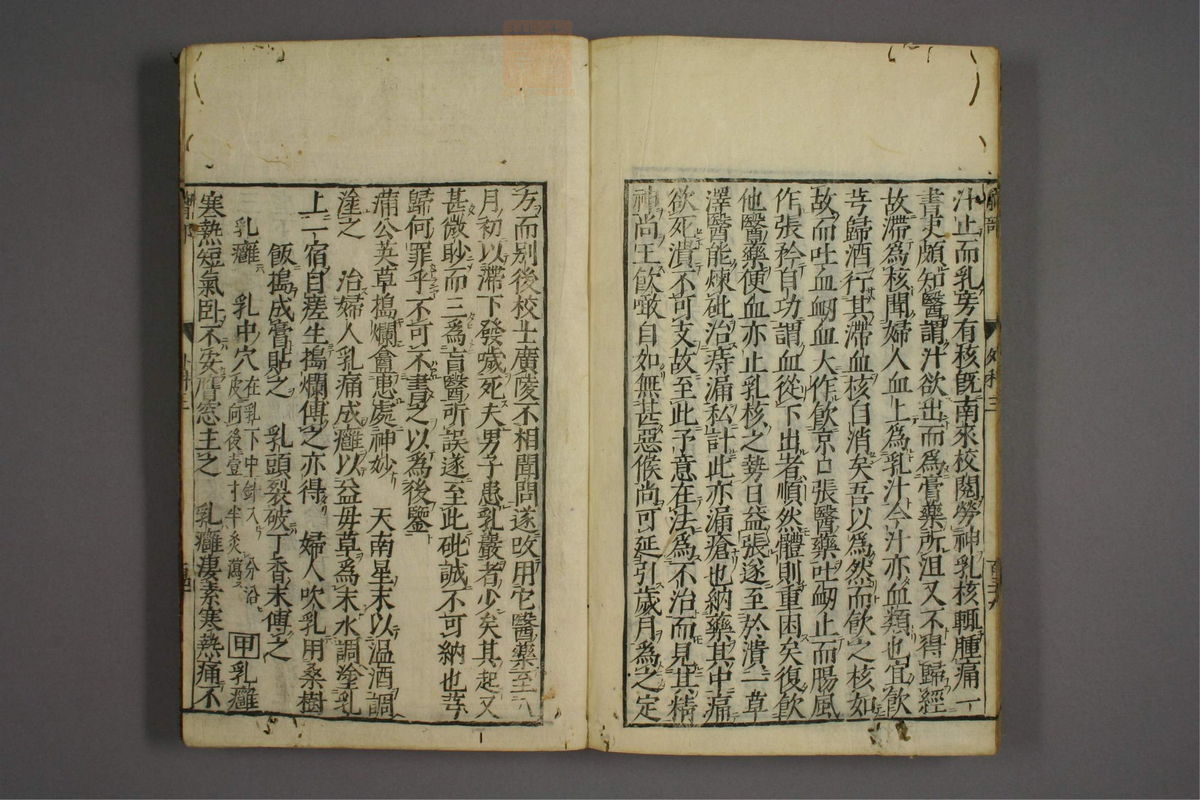 汁止而乳旁有核旣南來校閱勞神乳核輒腫痛一
書吏頗知醫謂汁欲出而爲膏藥所沮又不得歸經
故滯爲核聞婦人血上爲乳汁今汁亦血類也宜飲
芎歸酒行其滯血核自消矣吾以爲然而飲之核如
故而吐血衂血大作飲京口張醫藥吐衂止而腸風
作張矜自功謂血從下出者順然體則重困矣復飲
他醫藥便血亦止乳核之勢日益張遂至於潰一草
澤醫能煉砒治痔漏私計此亦漏瘡也納藥其中痛
欲死潰不可支故至此予意在法爲不治而見其精
神尚王飲噉自如無甚惡候尚可延引歲月爲之定
方而別後校士廣陵不相聞問遂改用它醫藥至六
月初以滯下發噦死夫男子患乳巖者少矣其起又
甚微眇而三爲盲醫所誤遂至此砒誠不可納也芎
歸何罪乎不可不書之以爲後鑒
蒲公英草搗爛盦患處神妙　天南星末以温酒調
塗之　治婦人乳痛成癰以益母草爲末水調塗乳
上一宿自瘥生搗爛傅之亦得　婦人吹乳用桑樹
飯搗成膏貼之　乳頭裂破丁香末傅之
乳癰　乳中穴在乳下中針入分沿皮向後壹寸半灸瀉　甲乳癰
寒熱短氣臥不安膺窓主之　乳癰凄素寒熱痛不